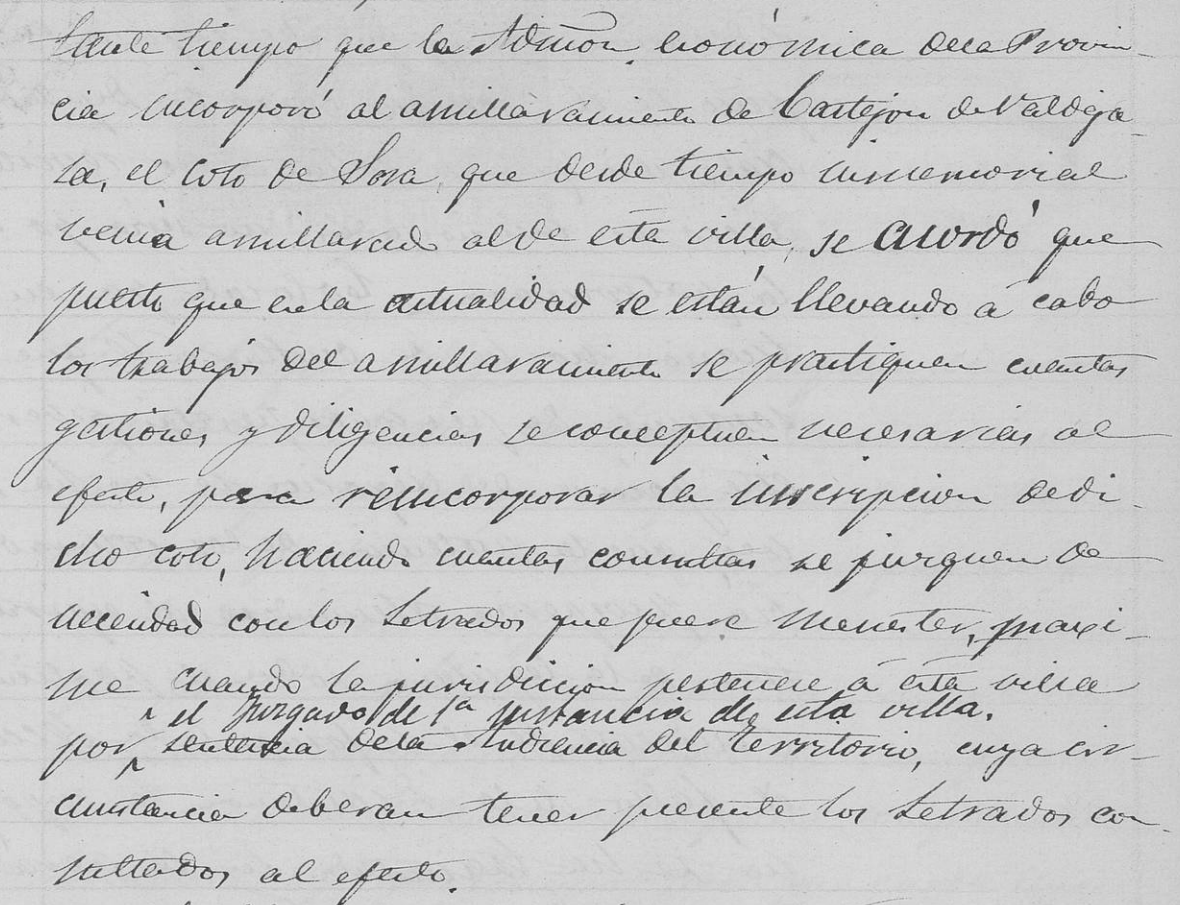 tante tiempo que la Admon. económica dela Provin-
cia incorporó al amillaramiento de Castejon de Valdeja-
sa, el coto de Sora, que desde tiempo inmemorial
venia amillarado al de esta villa, se acordó que
puesto que en la actualidad se están llevando á cabo
los trabajos del amillaramiento se practiquen cuantas
gestiones y diligencias se conceptuen necesarias al
efecto, para reincorporar la inscripcion de di-
cho coto, haciendo cuantas consultas se juzguen de
necesidad con los Letrados que fuere menester, maxi-
me cuando la jurisdiccion pertenece á esta villa
el Juzgado de 1ª instancia de esta villa.
por sentencia dela Audiencia del territorio, cuya cir-
cunstancia deberan tener presente los Letrados con-
sultados al efecto.